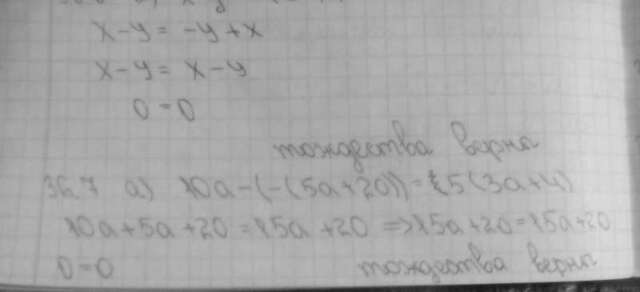 x-y = -y+x
x-y = x-y
0=0
тождества верна
36.7 а) 10a-(-(5a+20)) = 5(3a+4)
10a+5a+20 = 15a+20 => 15a+20 = 15a+20
0=0 тождества верна